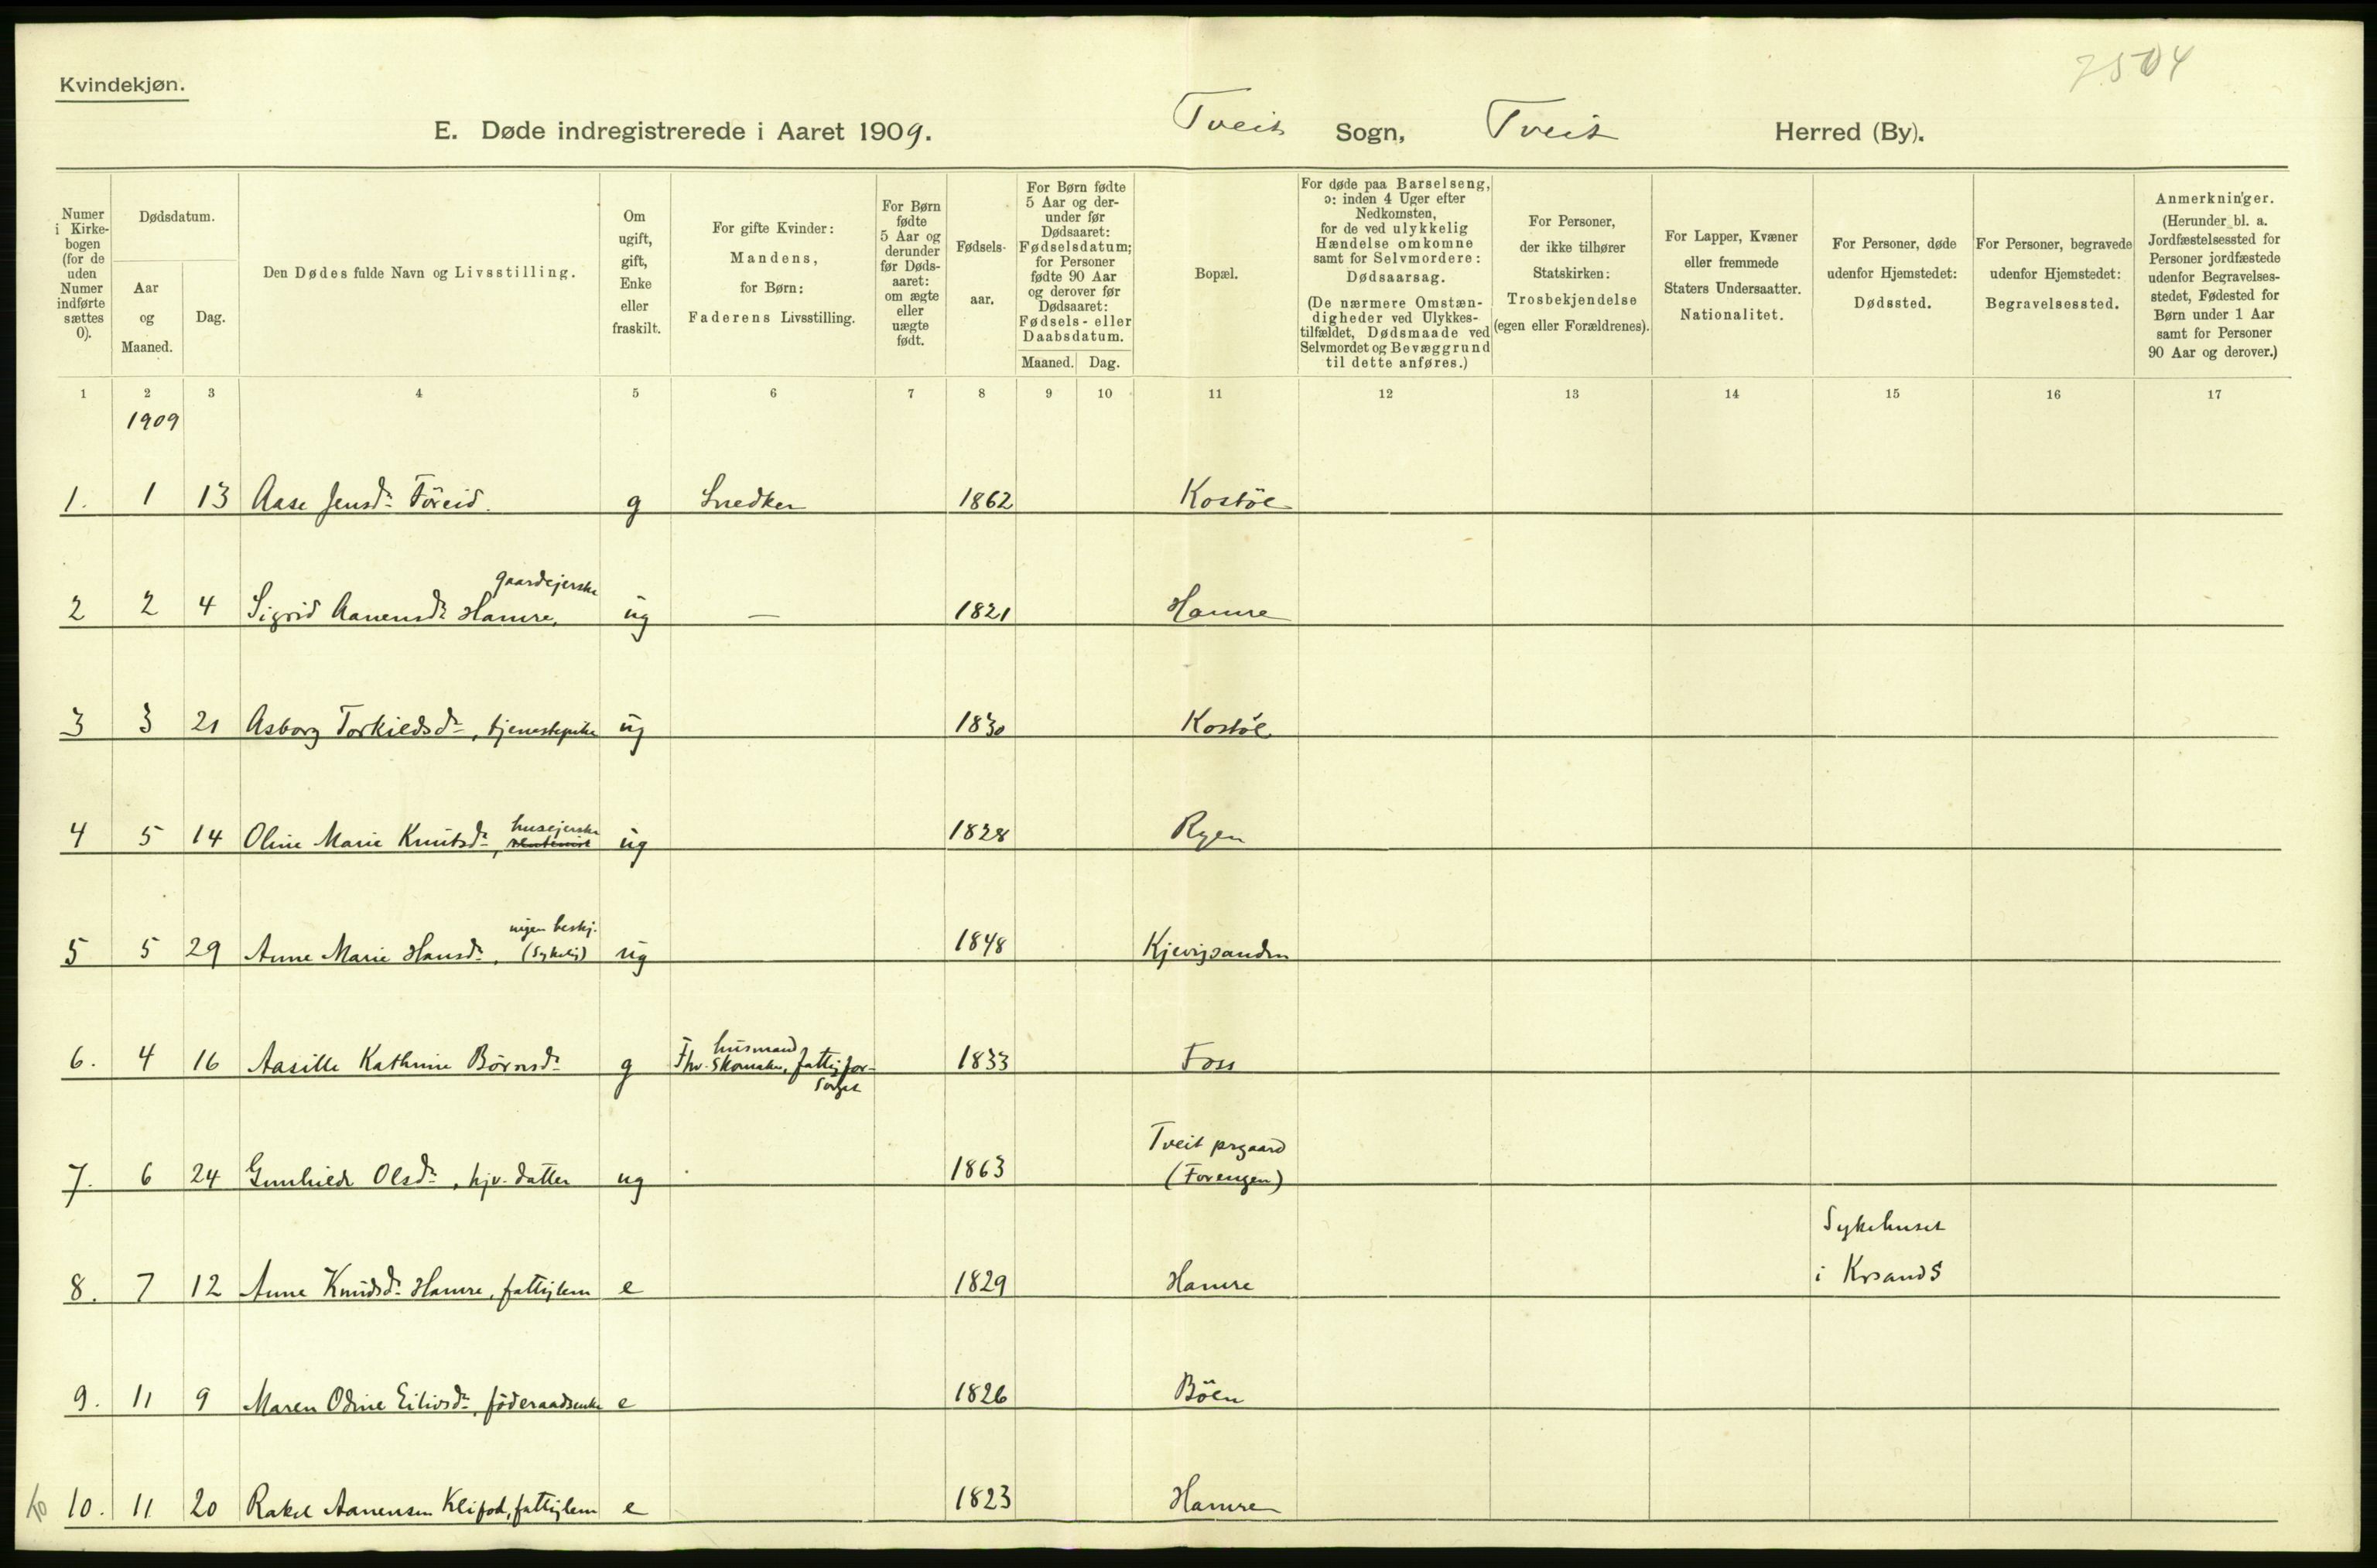 7504
Kvindekjøn.
E. Døde indregistrerede i Aaret 1909. Tveit Sogn, Tveit Herred (By).
Numer
i Kirke-
bogen
(for de
uden
Numer
indførte
sættes
0).
Dødsdatum.
Aar
og
Maaned.
Dag.
Den Dødes fulde Navn og Livsstilling.
Om
ugift,
gift,
Enke
eller
fraskilt.
For gifte Kvinder:
Mandens,
for Børn:
Faderens Livsstilling.
For Børn
fødte
5 Aar og
derunder
før Døds-
aaret:
om ægte
eller
uægte
født.
Fødsels-
aar.
For Børn fødte
5 Aar og der-
under før
Dødsaaret:
Fødselsdatum;
for Personer
fødte 90 Aar
og derover før
Dødsaaret:
Fødsels- eller
Daabsdatum.
Maaned. Dag.
Bopæl.
For døde paa Barselseng,
ɔ: inden 4 Uger efter
Nedkomsten,
for de ved ulykkelig
Hændelse omkomne
samt for Selvmordere:
Dødsaarsag.
(De nærmere Omstæn-
digheder ved Ulykkes-
tilfældet, Dødsmaade ved
Selvmordet og Bevæggrund
til dette anføres.)
For Personer,
der ikke tilhører
Statskirken:
Trosbekjendelse
(egen eller Forældrenes).
For Lapper, Kvæner
eller fremmede
Staters Undersaatter.
Nationalitet.
For Personer, døde
udenfor Hjemstedet:
Dødssted.
For Personer, begravede
udenfor Hjemstedet:
Begravelsessted.
Anmerkninger.
(Herunder bl. a.
Jordfæstelsessted for
Personer jordfæstede
udenfor Begravelses-
stedet, Fødested for
Børn under 1 Aar
samt for Personer
90 Aar og derover.)
1 2 3 4 5 6 7 8 9 10 11 12 13 14 15 16 17
1909
1. 1 13 Aase Jensd. Föreid. g Snedker 1862 Kostöl
gaardejerske
2 2 4 Sigrid Aanensd. Hamre, ug — 1821 Hamre
3 3 21 Asborg Torkildsd., tjenestepike ug 1830 Kostöl
husejerske
4 5 14 Oline Marie Knutsd., ug 1828 Ryen
ingen beskj.
5 5 29 Anne Marie Hansd., (sykelig) ug 1848 Kjevigsanden
husmand
6. 4 16 Aasille Kathrine Börnsd. g Fhv. Skomaker, fattigfor-
sörget
1833 Foss
Tveit prgaard
7. 6 24 Gunhilde Olsd., hjv. datter ug 1863 (Forengen)
Sykehuset
8. 7 12 Anne Knudsd. Hamre, fattiglem e 1829 Hamre i Krsand S
9. 11 9 Maren Odine Eilivsd., föderaadsenke e 1826 Böen
10. 11 20 Rakel Aanensen Klifod, fattiglem e 1823 Hamre